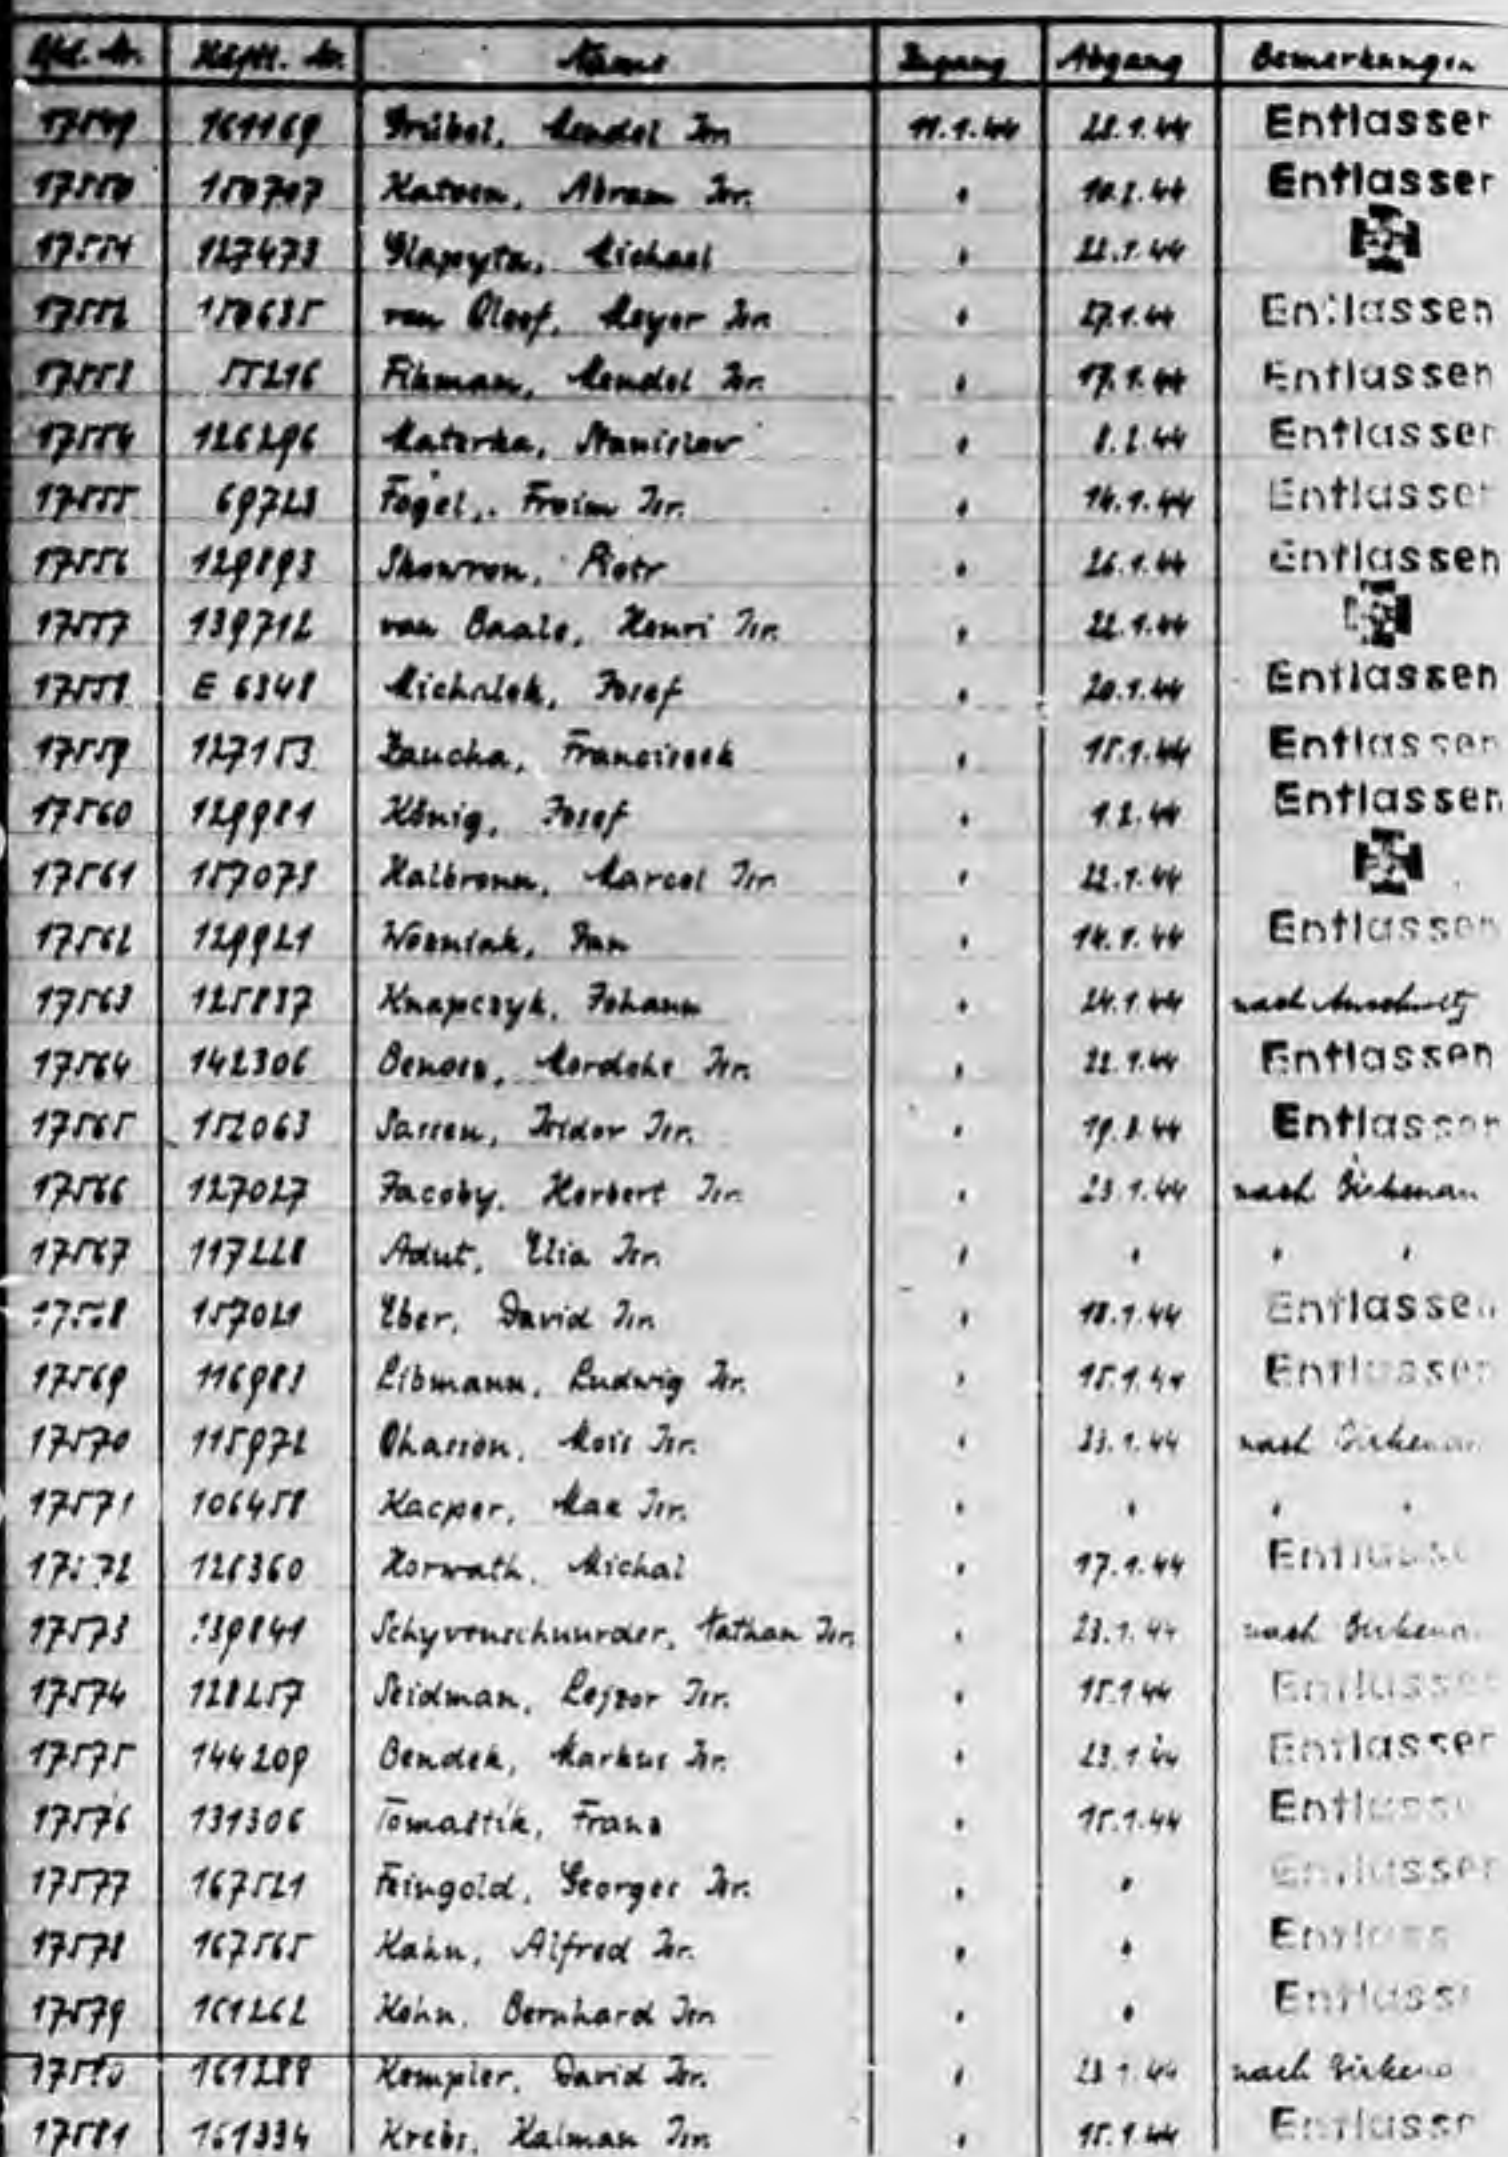 Lfd. Nr. Häftl. Nr. Name Zugang Abgang Bemerkungen
17549 161169 Grübel, Mendel Isr. 11.1.44 28.1.44 Entlassen
17550 150707 Katoen, Abram Isr. " 10.2.44 Entlassen
17551 127473 Michael " 22.1.44
17552 150635 van Meyer Isr. " 27.1.44 Entlassen
17553 55216 Fikman, Mendel Isr. " 17.1.44 Entlassen
17554 126296 Materka, Stanislav " 8.2.44 Entlassen
17555 69723 Fogel, Froim Isr. " 14.1.44 Entlassen
17556 129893 Skowron, Piotr " 26.1.44 Entlassen
17557 139712 van Baale, Henri Isr. " 22.1.44
17558 E 6348 Michalek, Josef " 20.1.44 Entlassen
17559 127153 Zaucha, Franciszek " 15.1.44 Entlassen
17560 129981 König, Josef " 1.2.44 Entlassen
17561 157073 Halbronn, Marcel Isr. " 22.1.44
17562 129921 Wozniak, Jan " 14.1.44 Entlassen
17563 125837 Knapczyk, Johann " 24.1.44 nach Auschwitz
17564 142306 Mordche Isr. " 22.1.44 Entlassen
17565 152063 Sassen, Isidor Isr. " 44 Entlassen
17566 127027 Jacoby, Herbert Isr. " 23.1.44 nach Birkenau
17567 117228 Adut, Elia Isr. " " " "
17568 157021 Eber, David Isr. " 18.1.44 Entlassen
17569 116983 Libmann, Ludwig Isr. " 15.1.44 Entlassen
17570 115972 Mois Isr. " 23.1.44 nach Birkenau
17571 106458 Kacper, Max Isr. " " " "
17572 126360 Horwath, Michal " 17.1.44 Entlassen
17573 139841 Schyvenschuurder, Nathan Isr. " 23.1.44 nach Birkenau
17574 128257 Seidman, Lejzor Isr. " 15.1.44 Entlassen
17575 144209 Bendek, Markus Isr. " 23.1.44 Entlassen
17576 131306 Tomastik, Franz " 15.1.44 Entlassen
17577 167521 Feingold, Georges Isr. " " Entlassen
17578 167565 Kahn, Alfred Isr. " " Entlassen
17579 161262 Kohn, Bernhard Isr. " " Entlassen
17580 161288 Kempler, David Isr. " 23.1.44 nach Birkenau
17581 161334 Krebs, Kalman Isr. " 15.1.44 Entlassen